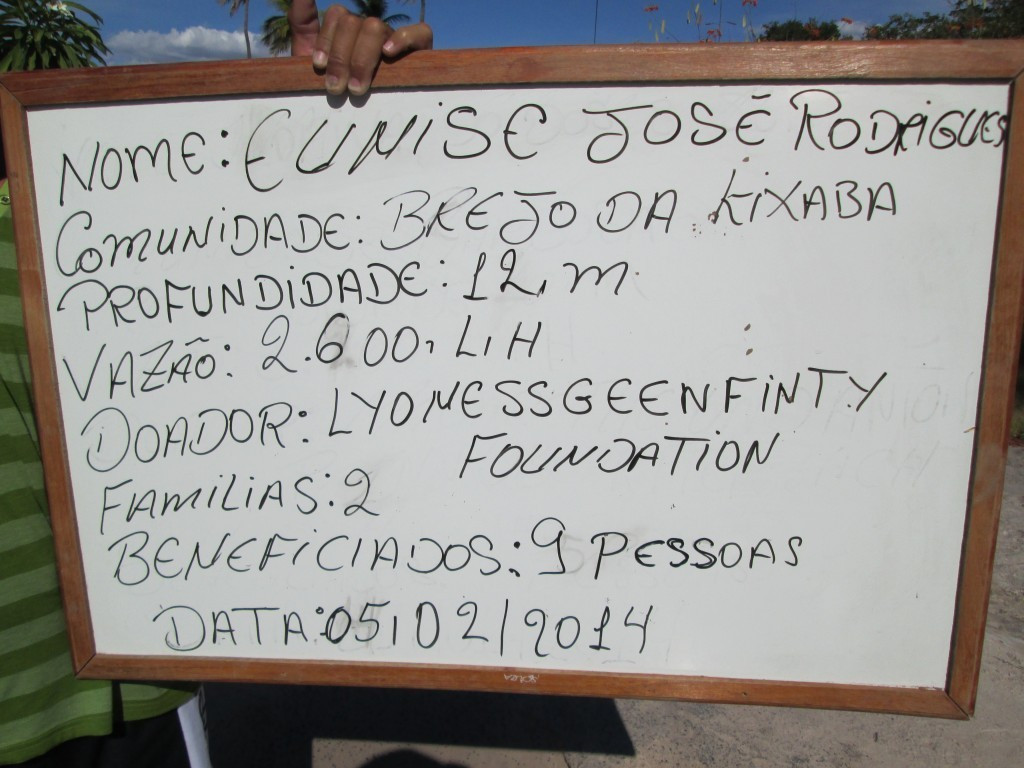 NOME: EUNISE JOSÉ RODRIGUES
COMUNIDADE: BREJO DA KIXABA
PROFUNDIDADE: 12, m.
VAZÃO: 2.600, L, H
DOADOR: LYONESSGEENFINTY
FOUNDATION
FAMILIAS: 2
BENEFICIADOS: 9 PESSOAS
DATA: 05, 02/2014